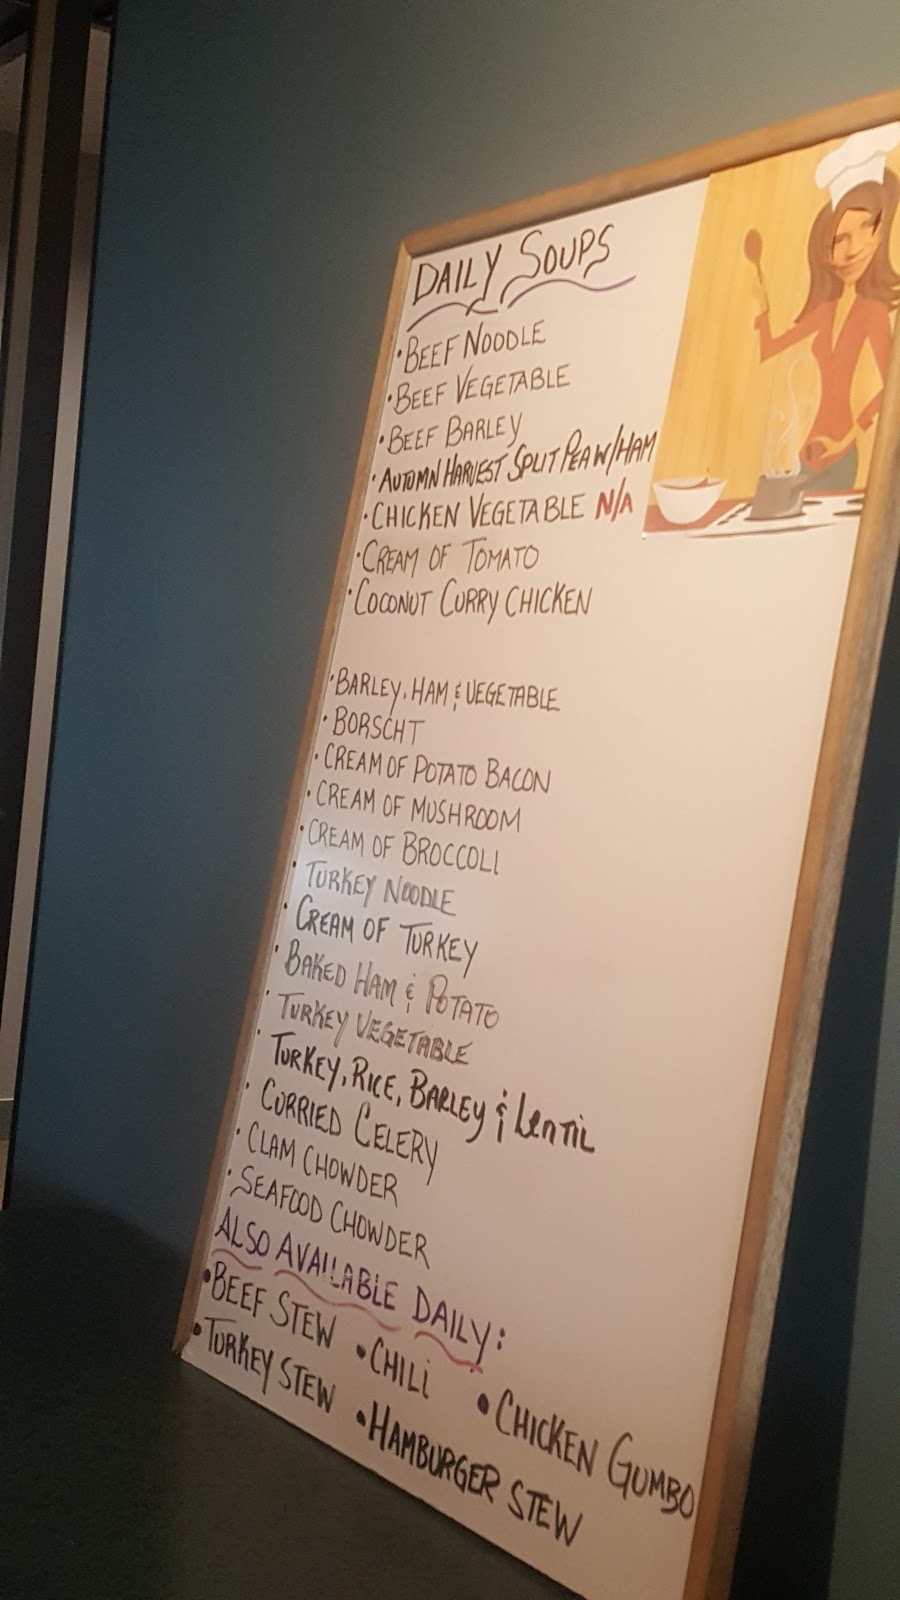 DAILY SOUPS
• BEEF NOODLE
• BEEF VEGETABLE
• BEEF BARLEY
• AUTUMN HARVEST SPLIT PEA W/HAM
• CHICKEN VEGETABLE N/A
• CREAM OF TOMATO
• COCONUT CURRY CHICKEN
• BARLEY, HAM & VEGETABLE
• BORSCHT
• CREAM OF POTATO BACON
• CREAM OF MUSHROOM
• CREAM OF BROCCOLI
• TURKEY NOODLE
• CREAM OF TURKEY
• BAKED HAM & POTATO
• TURKEY VEGETABLE
• TURKEY, RICE, BARLEY & LENTIL
• CURRIED CELERY
• CLAM CHOWDER
• SEAFOOD CHOWDER
ALSO AVAILABLE DAILY:
• BEEF STEW • CHILI • CHICKEN GUMBO
• TURKEY STEW • HAMBURGER STEW